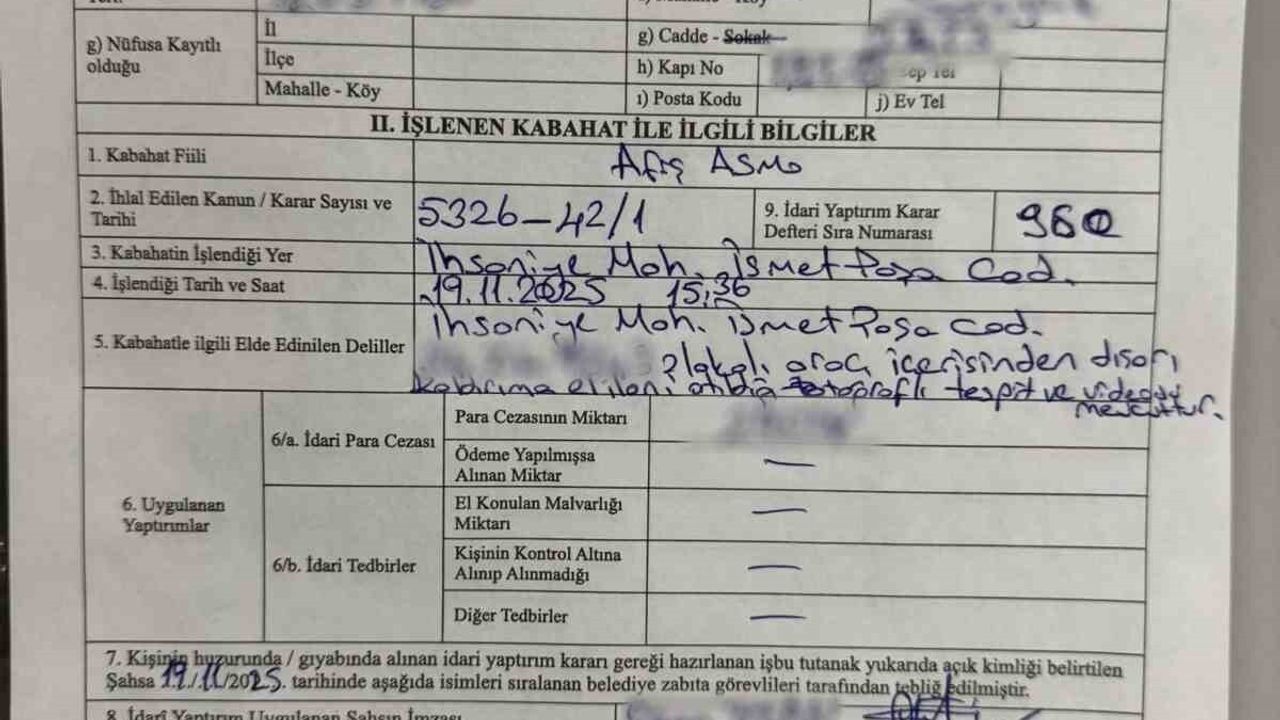 g) Nüfusa Kayıtlı olduğu
İl
g) Cadde - Sokak
İlçe
h) Kapı No
Cep Tel
Mahalle - Köy
ı) Posta Kodu
j) Ev Tel
II. İŞLENEN KABAHAT İLE İLGİLİ BİLGİLER
1. Kabahat Fiili
Afiş Asma
2. İhlal Edilen Kanun / Karar Sayısı ve
Tarihi
5326-42/1
9. İdari Yaptırım Karar
Defteri Sıra Numarası
960
3. Kabahatin İşlendiği Yer
İhsaniye Mah. İsmet Paşa Cad.
4. İşlendiği Tarih ve Saat
19.11.2025 15:36
5. Kabahatle ilgili Elde Edinilen Deliller
İhsaniye Mah. İsmet Paşa Cad.
Plakalı araç içerisinden dışarı
kaldırıma atıldığı fotoğraflı tespit ve videosu
mevcuttur.
6. Uygulanan
Yaptırımlar
6/a. İdari Para Cezası
Para Cezasının Miktarı
Ödeme Yapılmışsa
Alınan Miktar
—
6/b. İdari Tedbirler
El Konulan Malvarlığı
Miktarı
—
Kişinin Kontrol Altına
Alınıp Alınmadığı
—
Diğer Tedbirler
—
7. Kişinin huzurunda / gıyabında alınan idari yaptırım kararı gereği hazırlanan işbu tutanak yukarıda açık kimliği belirtilen
Şahsa 19/11/2025. tarihinde aşağıda isimleri sıralanan belediye zabıta görevlileri tarafından tebliğ edilmiştir.
8. İdarî Yaptırım Uygulanan Şahsın İmzası